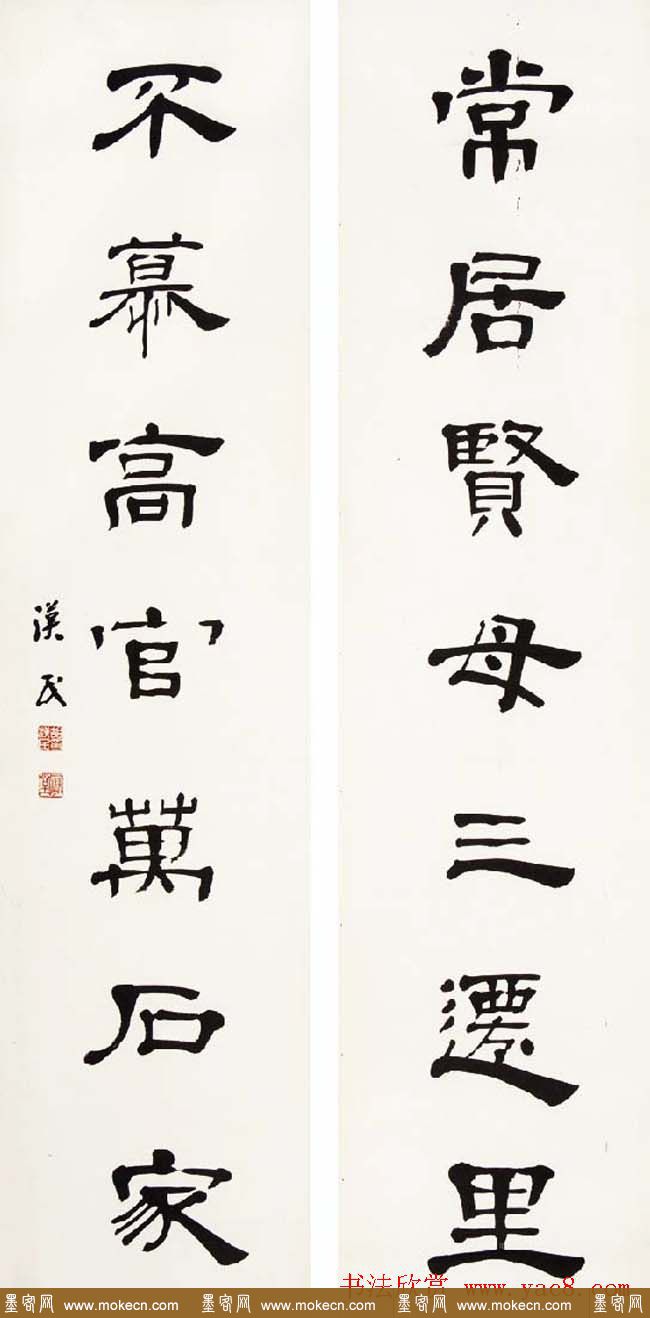 常居賢母三遷里
不慕高官萬石家
漢民
书法欣赏 www.yac8.com
墨客网 www.mokecn.com 墨客网 www.mokecn.com 墨客网 www.mokecn.com 墨客网 www.mokecn.com